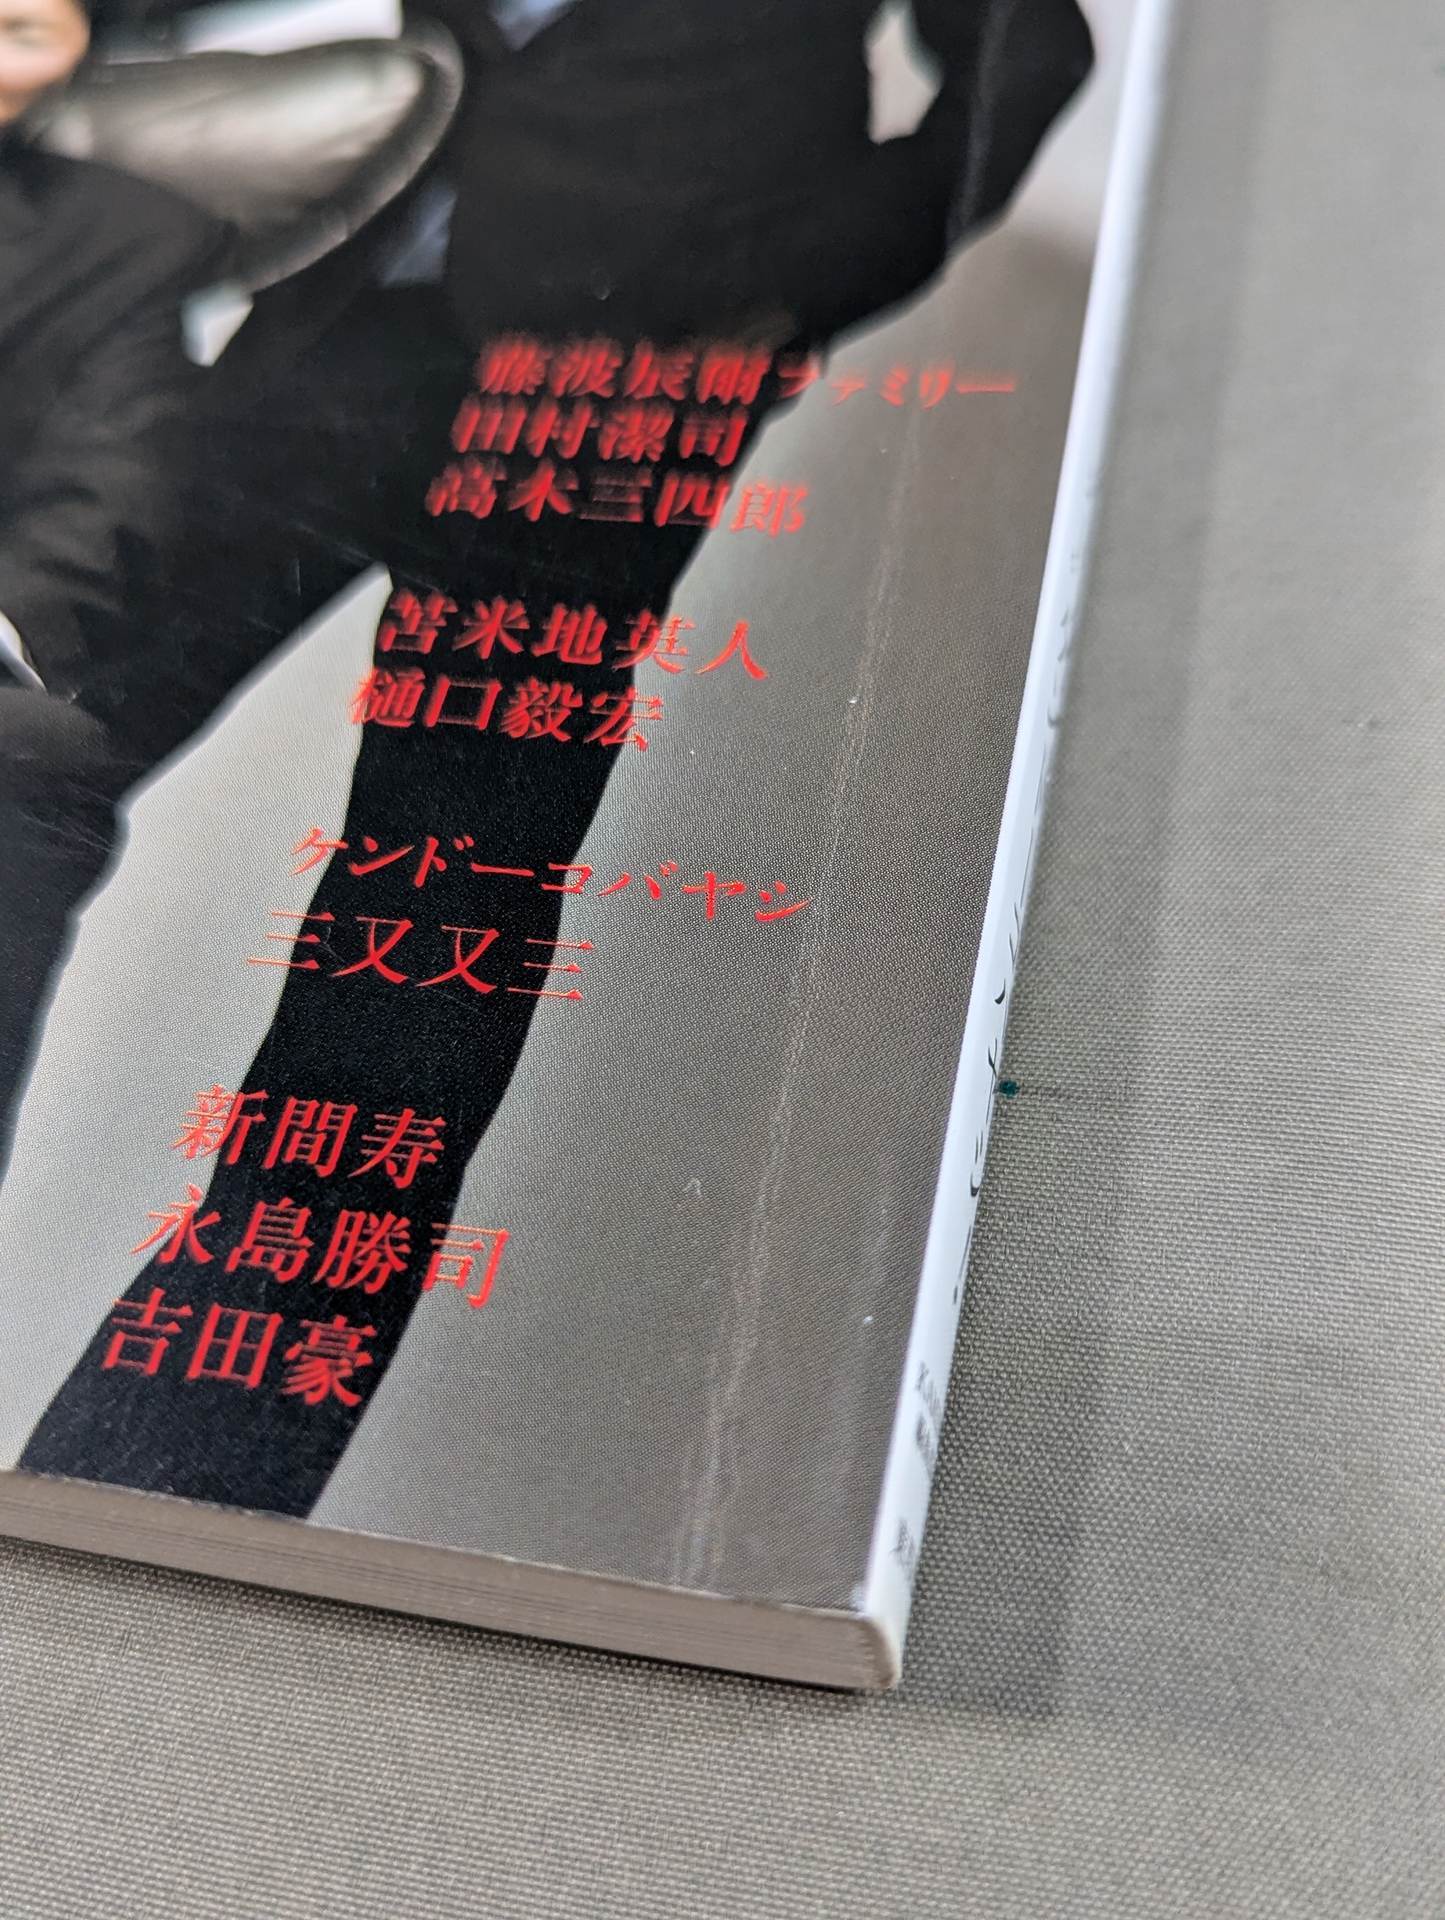 藤波辰爾ファミリー
田村潔司
高木三四郎
苫米地英人
樋口毅宏
ケンドーコバヤシ
三又又三
新間寿
永島勝司
吉田豪